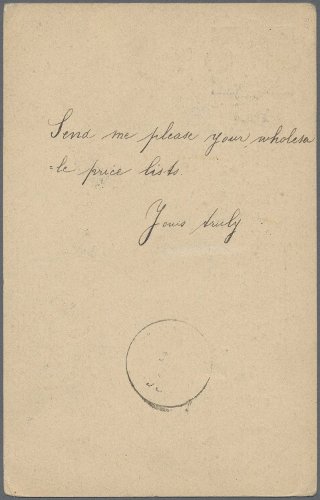 Send me please your wholesa
-le price lists.
Yours truly